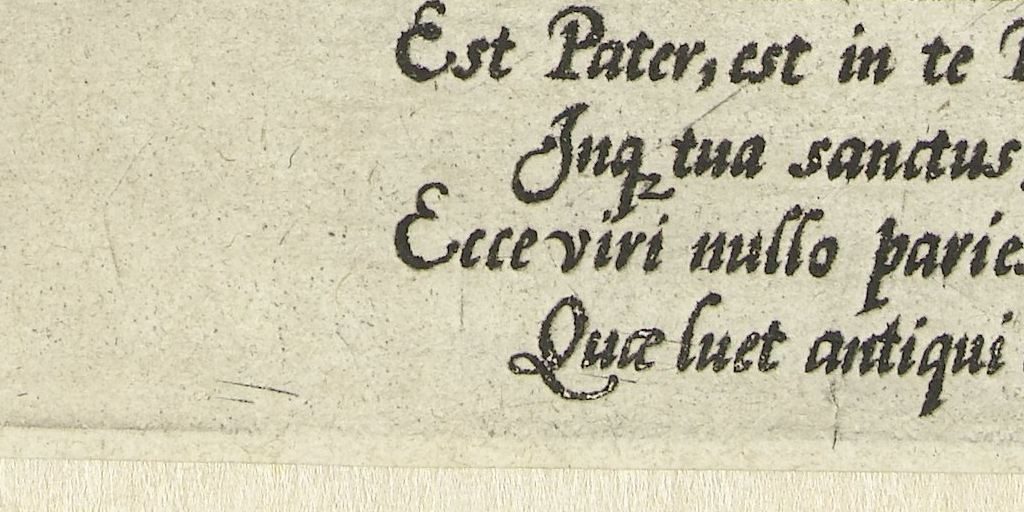 Est Pater, est in te
Inq tua sanctus,
Ecce viri nullo paries
Quæ luet antiqui